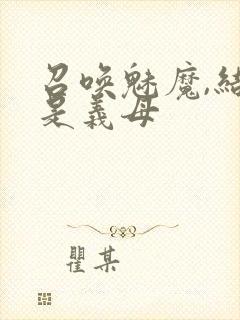 召唤魅魔,结
是義母
瞿某